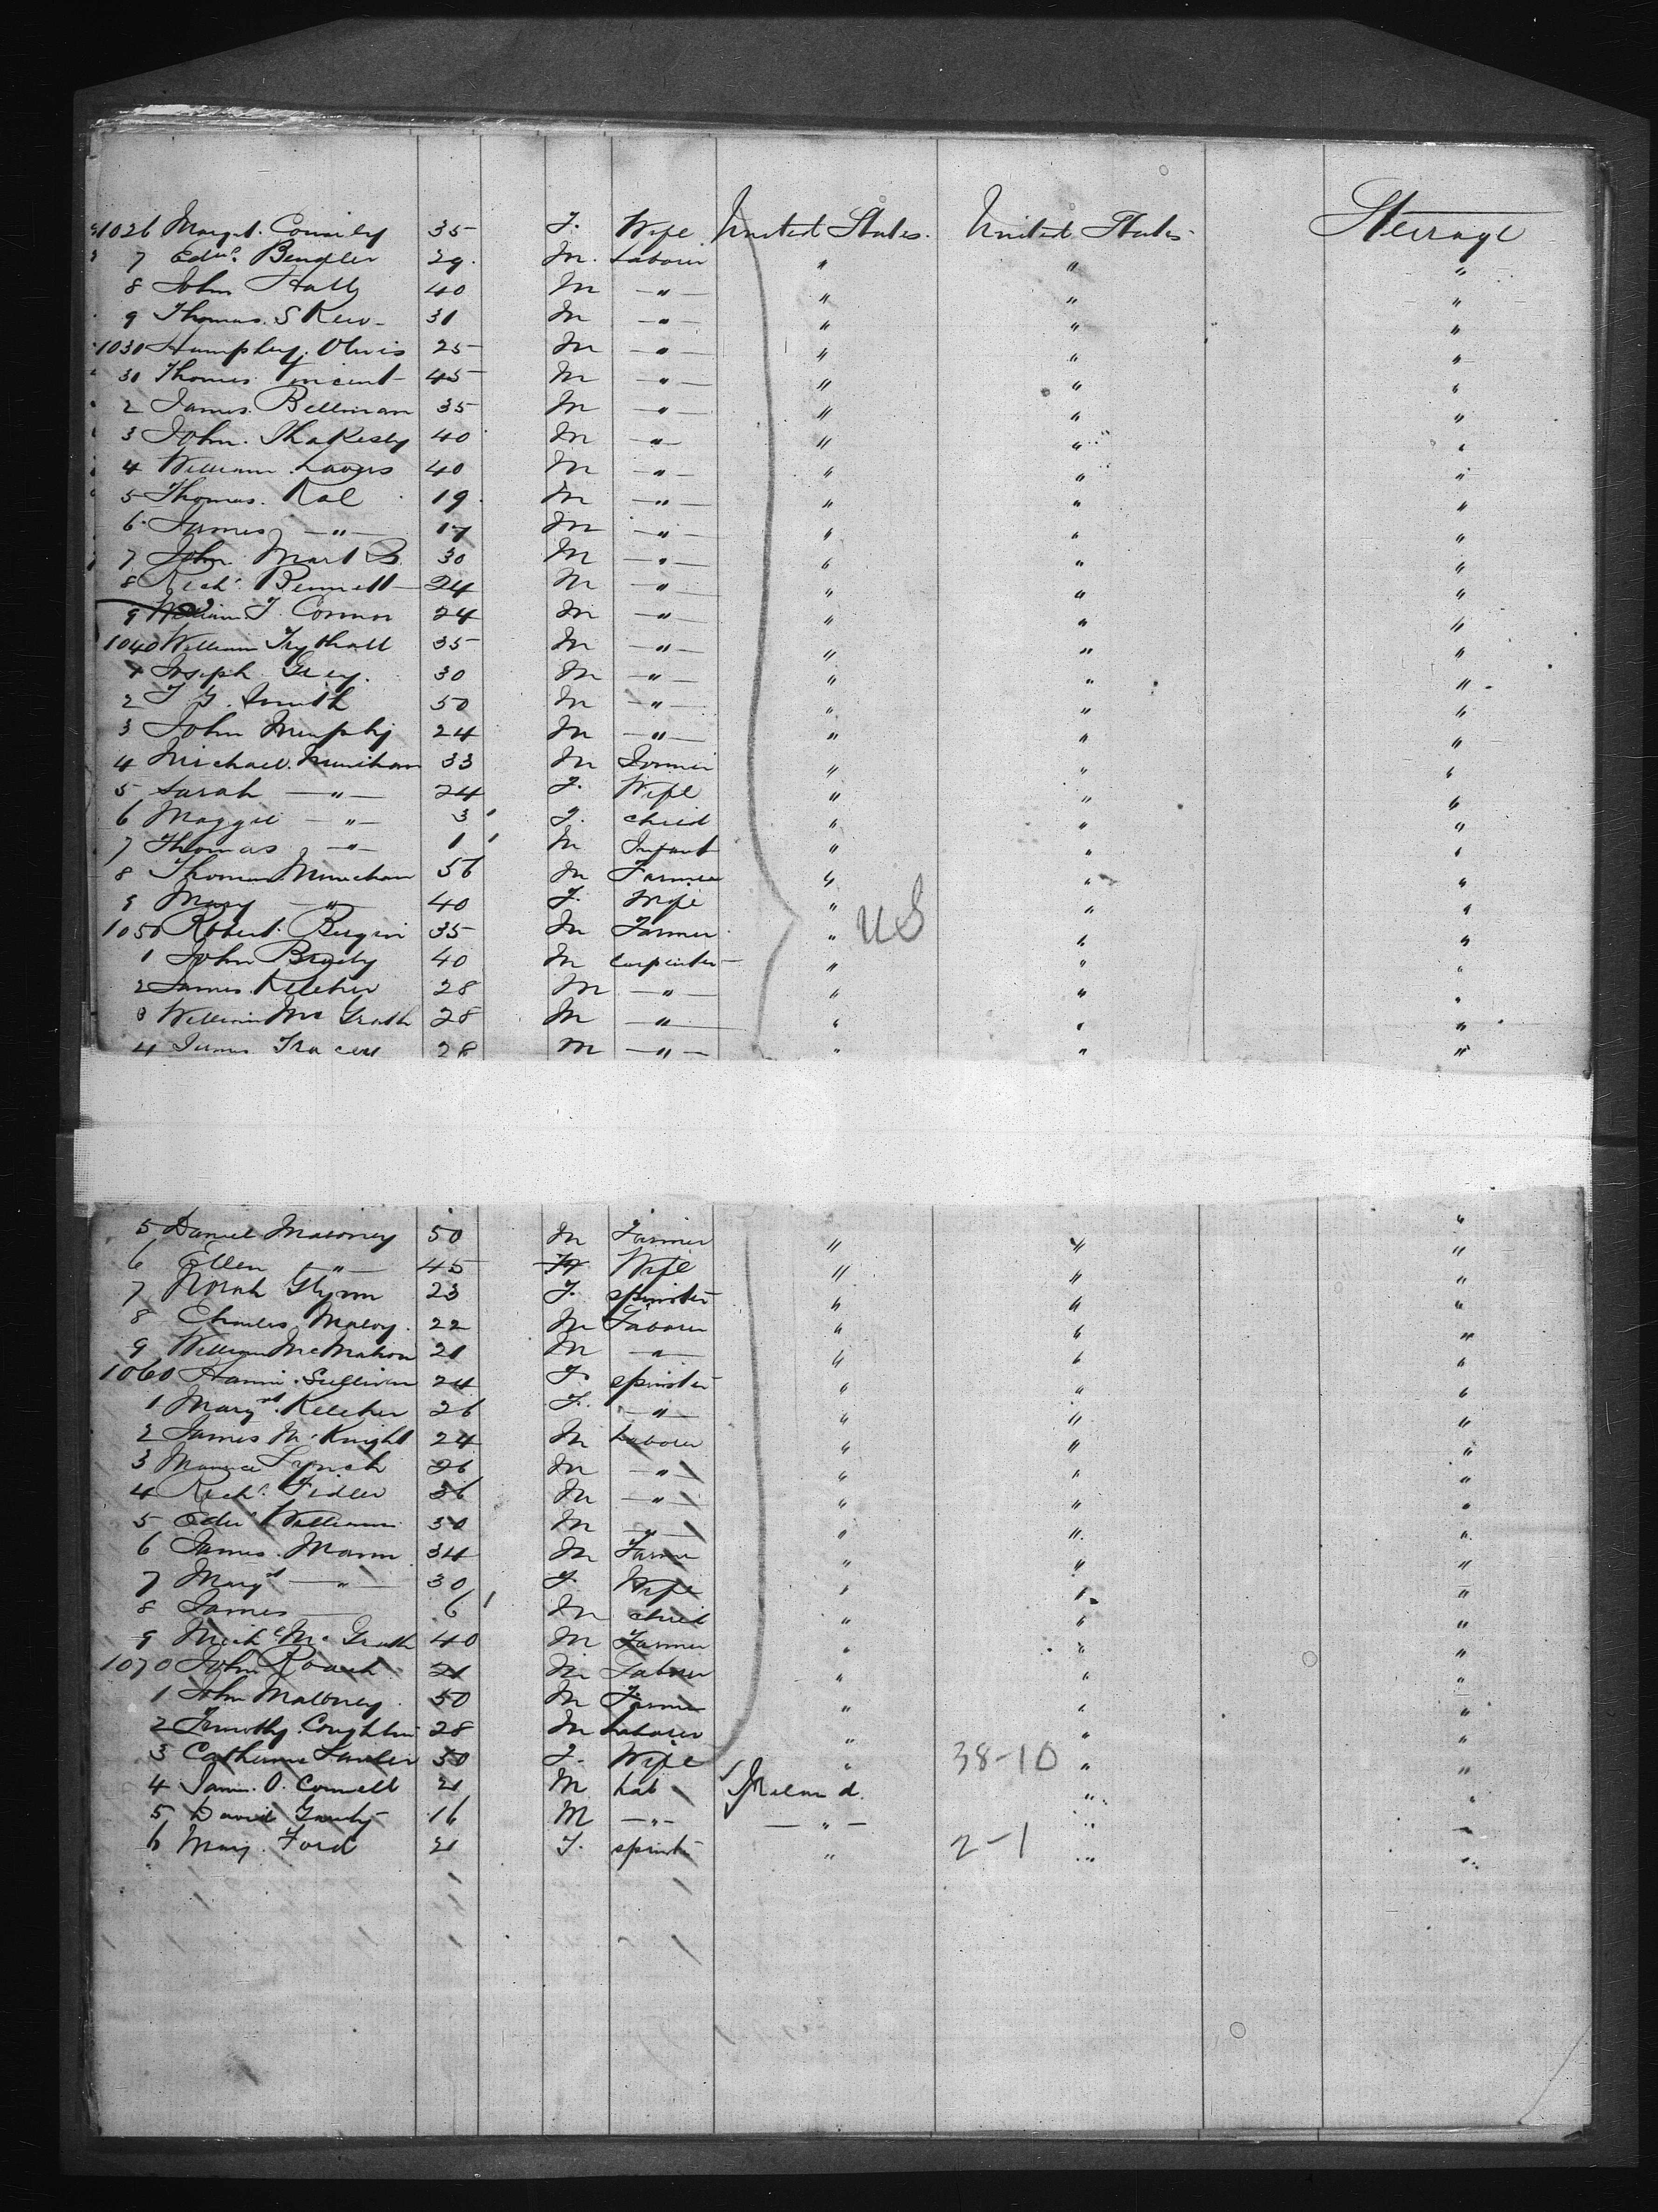 1026 Margt. Connily 35 F. Wife United States. United States Steerage
7 Edwd. Bendler 29. M. Labourer " " "
8 John Hally 40 M —"— " " "
9 Thomas. Skew 31 M —"— " " "
1030 Humphry. 25 M —"— " " "
30 Thomas Vincent 45 M —"— " " "
2 James. Bellman 35 M —"— " " "
3 John. Shakesby 40 M —"— " " "
4 William 40 M —"— " " "
5 Thomas. Kal 19. M —"— " " "
6 James —"— 17 M —"— " " "
7 John 30 M —"— " " "
8 Richd. Bennett 24 M —"— " " "
9 William T. Connor 24 M —"— " " "
1040 William Trythall 35 M —"— " " "
1 Joseph Grey. 30 M —"— " " "
2 Smith 50 M —"— " " "
3 John Murphy 24 M —"— " " "
4 Michael. 33 M " " "
5 Sarah —"— 24 F. Wife " " "
6 Maggie —"— 3 F. child " " "
7 Thomas —"— 1 M Infant " " "
8 Thomas 56 M Farmer " " "
9 Mary —"— 40 F. Wife " " "
1050 Robert. Bergin 35 M Farmer " US " "
1 John Brody 40 M Carpenter " " "
2 James. Keleher 28 M —"— " " "
3 William Mc Grath 28 M —"— " " "
4 James Tracey 28 M —"— " " "
5 Daniel Maloney 50 M Farmer " " "
6 Ellen —"— 45 F Wife " " "
7 Norah Glynn 23 F. spinster " " "
8 Charles Maloy. 22 M Labourer " " "
9 William McMahon 21 M —"— " " "
1060 Hanni. Sullivan 24 F. spinster " " "
1 Margt. Keleher 26 F. —"— " " "
2 James McKnight 24 M Labourer " " "
3 Maurice Lynch 26 M —"— " " "
4 Richd. Fidler 36 M —"— " " "
5 Edwd William 30 M —"— " " "
6 James. Mann 34 M Farmer " " "
7 Margt —"— 30 F. Wife " " "
8 James 6 M child " " "
9 Michl Mc Grath 40 M Farmer " " "
1070 John Roach 21 M Labourer " " "
1 John Maloney. 50 M Farmer " " "
2 Timothy. Coughlin 28 M Labourer " " "
3 Catherine Lawler 50 F. Wife " 38-10 " "
4 O. Connell 21 M Lab Ireland. " "
5 David 16 M —"— —"— " "
6 Mary. Ford 21 F. spinster " 2-1 " "